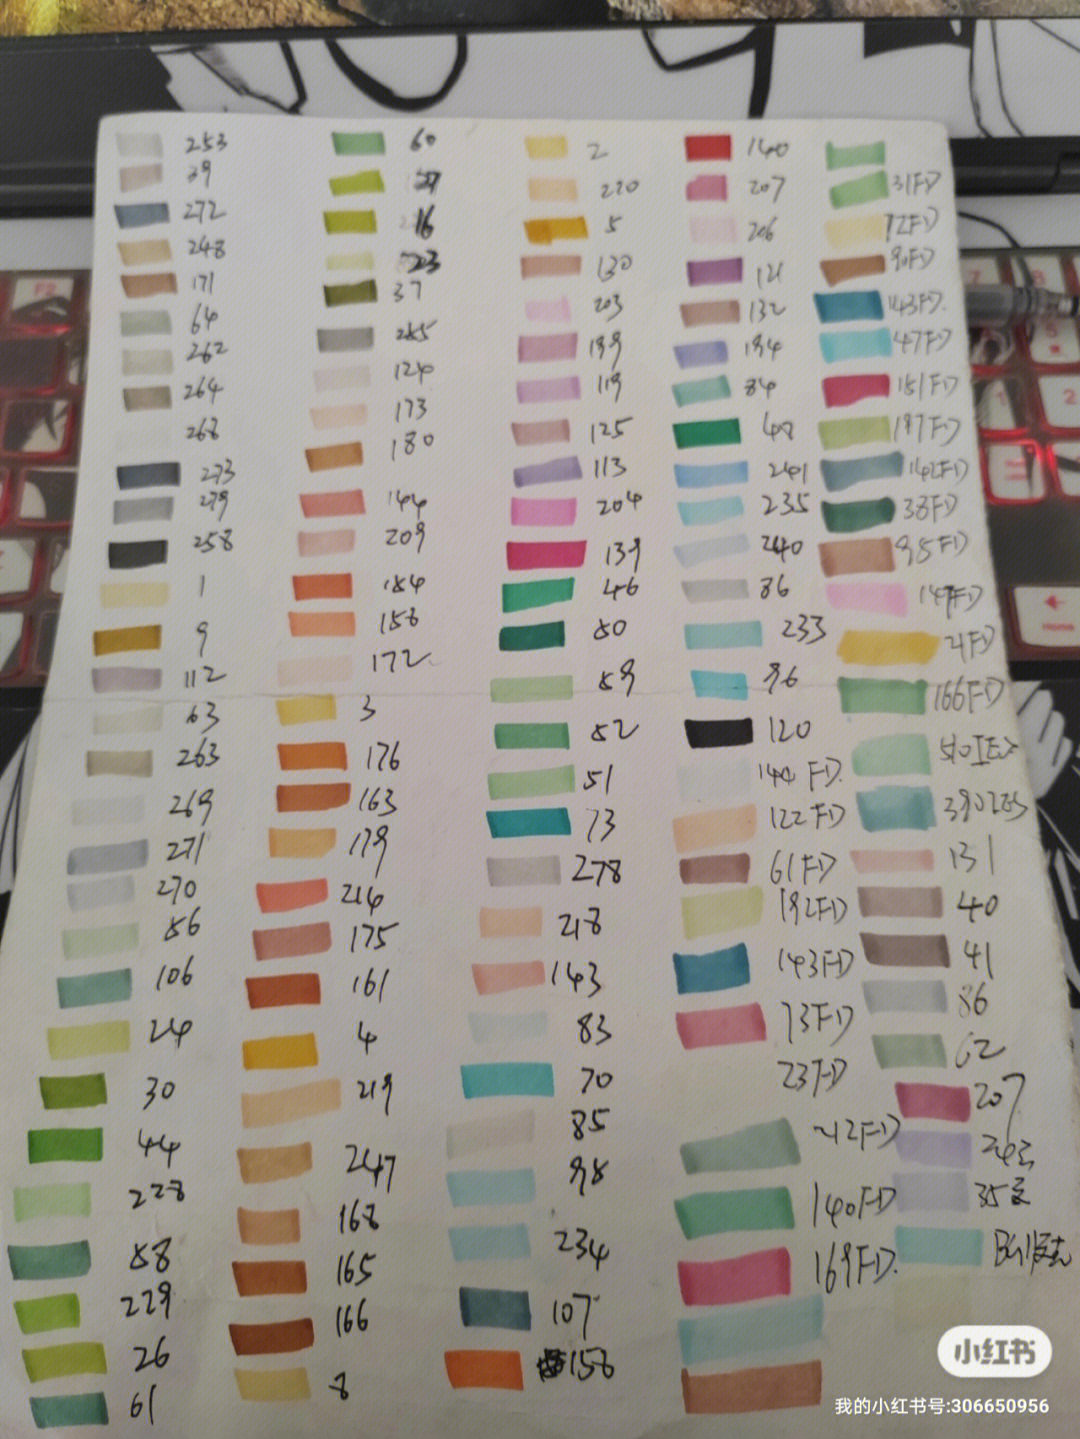 253
39
272
248
171
64
262
264
268
273
279
258
1
9
112
63
263
269
271
270
56
106
24
30
44
228
58
229
26
61
60
27
16
23
37
265
124
173
180
144
209
154
156
172
3
176
163
179
214
175
161
4
219
247
168
165
166
8
2
220
5
130
203
199
119
125
113
204
139
46
50
59
52
51
73
278
218
143
83
70
85
98
234
107
158
140
207
206
121
132
194
84
48
241
235
240
86
233
96
120
144 FD.
122 FD
61 FD
192FD
143FD
73FD
23FD
212FD
140FD
169FD.
31FD
72FD
90FD
143FD.
47FD
151FD
197FD
142FD
38FD
95FD
21FD
166FD
131
40
41
86
62
207
小红书
我的小红书号:306650956